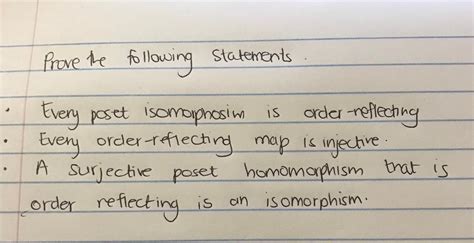 Prove the following statements.
• Every poset isomorphosim is order-reflecting
• Every order-reflecting map is injective.
• A surjective poset homomorphism that is
order reflecting is an isomorphism.